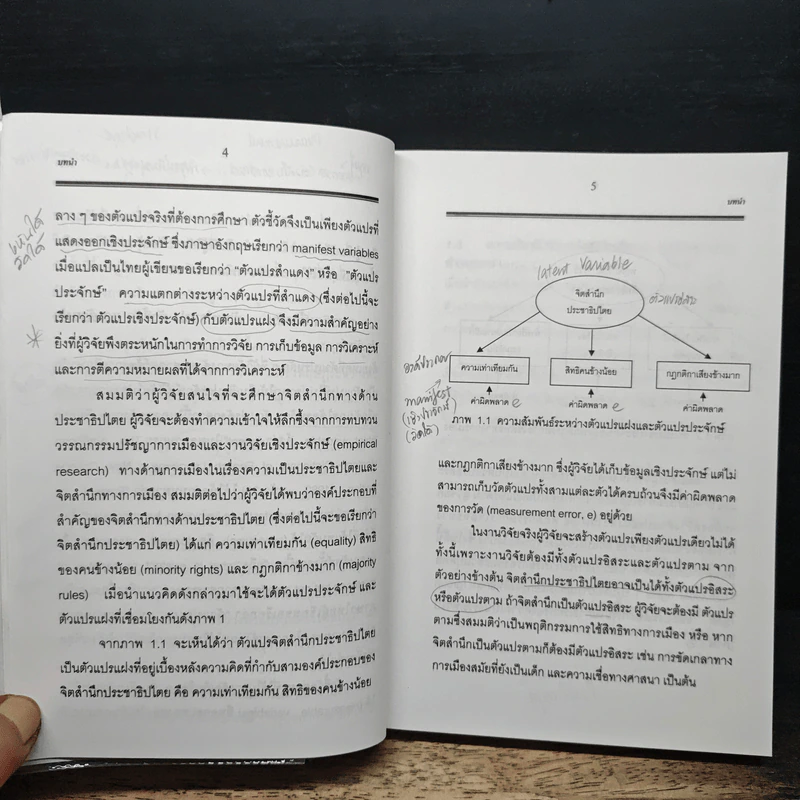 4
บทนำ
ลาง ๆ ของตัวแปรจริงที่ต้องการศึกษา ตัวชี้วัดจึงเป็นเพียงตัวแปรที่
แสดงออกเชิงประจักษ์ ซึ่งภาษาอังกฤษเรียกว่า manifest variables
เมื่อแปลเป็นไทยผู้เขียนขอเรียกว่า "ตัวแปรสำแดง" หรือ "ตัวแปร
ประจักษ์" ความแตกต่างระหว่างตัวแปรที่สำแดง (ซึ่งต่อไปนี้จะ
เรียกว่า ตัวแปรเชิงประจักษ์) กับตัวแปรแฝง จึงมีความสำคัญอย่าง
ยิ่งที่ผู้วิจัยพึงตระหนักในการทำการวิจัย การเก็บข้อมูล การวิเคราะห์
และการตีความหมายผลที่ได้จากการวิเคราะห์
สมมติว่าผู้วิจัยสนใจที่จะศึกษาจิตสำนึกทางด้าน
ประชาธิปไตย ผู้วิจัยจะต้องทำความเข้าใจให้ลึกซึ้งจากการทบทวน
วรรณกรรมปรัชญาการเมืองและงานวิจัยเชิงประจักษ์ (empirical
research) ทางด้านการเมืองในเรื่องความเป็นประชาธิปไตยและ
จิตสำนึกทางการเมือง สมมติต่อไปว่าผู้วิจัยได้พบว่าองค์ประกอบที่
สำคัญของจิตสำนึกทางด้านประชาธิปไตย (ซึ่งต่อไปนี้จะขอเรียกว่า
จิตสำนึกประชาธิปไตย) ได้แก่ ความเท่าเทียมกัน (equality) สิทธิ
ของคนข้างน้อย (minority rights) และ กฎกติกาข้างมาก (majority
rules) เมื่อนำแนวคิดดังกล่าวมาใช้จะได้ตัวแปรประจักษ์ และ
ตัวแปรแฝงที่เชื่อมโยงกันดังภาพ 1
จากภาพ 1.1 จะเห็นได้ว่า ตัวแปรจิตสำนึกประชาธิปไตย
เป็นตัวแปรแฝงที่อยู่เบื้องหลังความคิดที่กำกับสามองค์ประกอบของ
จิตสำนึกประชาธิปไตย คือ ความเท่าเทียมกัน สิทธิของคนข้างน้อย
5
บทนำ
latent variable
จิตสำนึก
ประชาธิปไตย
ความเท่าเทียมกัน
สิทธิคนข้างน้อย
กฎกติกาเสียงข้างมาก
manifest
ค่าผิดพลาด e
ค่าผิดพลาด e
ค่าผิดพลาด
ภาพ 1.1 ความสัมพันธ์ระหว่างตัวแปรแฝงและตัวแปรประจักษ์
และกฎกติกาเสียงข้างมาก ซึ่งผู้วิจัยได้เก็บข้อมูลเชิงประจักษ์ แต่ไม่
สามารถเก็บวัดตัวแปรทั้งสามแต่ละตัวได้ครบถ้วนจึงมีค่าผิดพลาด
ของการวัด (measurement error, e) อยู่ด้วย
ในงานวิจัยจริงผู้วิจัยจะสร้างตัวแปรเพียงตัวแปรเดียวไม่ได้
ทั้งนี้เพราะงานวิจัยต้องมีทั้งตัวแปรอิสระและตัวแปรตาม จาก
ตัวอย่างข้างต้น จิตสำนึกประชาธิปไตยอาจเป็นได้ทั้งตัวแปรอิสระ
หรือตัวแปรตาม ถ้าจิตสำนึกเป็นตัวแปรอิสระ ผู้วิจัยจะต้องมี ตัวแปร
ตามซึ่งสมมติว่าเป็นพฤติกรรมการใช้สิทธิทางการเมือง หรือ หาก
จิตสำนึกเป็นตัวแปรตามก็ต้องมีตัวแปรอิสระ เช่น การขัดเกลาทาง
การเมืองสมัยที่ยังเป็นเด็ก และความเชื่อทางศาสนา เป็นต้น